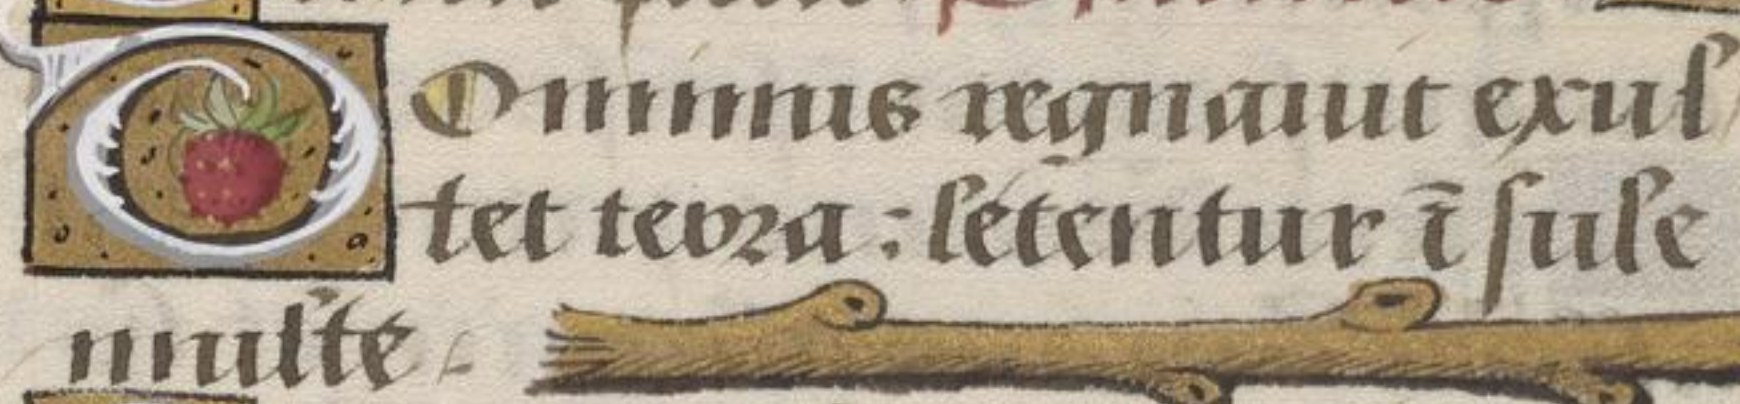 Dominus regnauit exul
tet terra : letentur ī sule
multe .